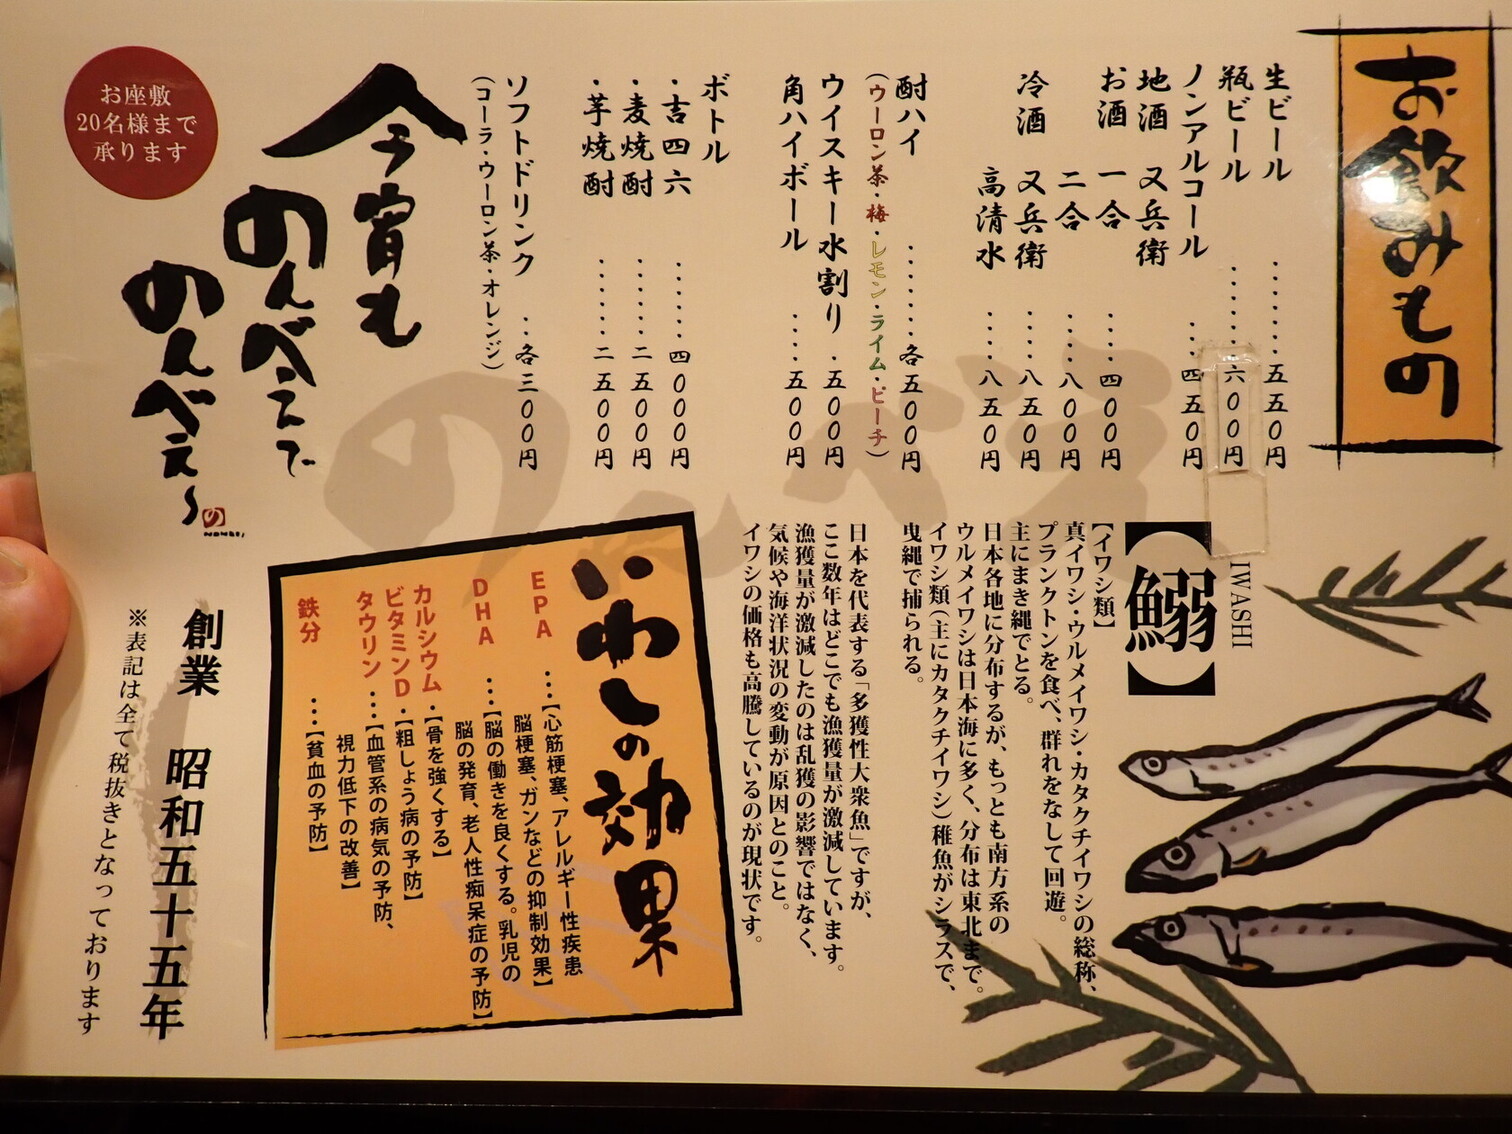 お飲みもの
生ビール ・・・・・・・五五〇円
瓶ビール ・・・・・・六〇〇円
ノンアルコール ・・・四五〇円
地酒 又兵衛
お酒 一合 ・・・・四〇〇円
二合 ・・・・八〇〇円
冷酒 又兵衛 ・・・・八五〇円
高清水 ・・・・八五〇円
酎ハイ ・・・・・・・・各五〇〇円
（ウーロン茶・梅・レモン・ライム・ピーチ）
ウイスキー水割り ・五〇〇円
角ハイボール ・・・・五〇〇円
ボトル
・吉四六 ・・・・・・四〇〇〇円
・麦焼酎 ・・・・・・二五〇〇円
・芋焼酎 ・・・・・・二五〇〇円
ソフトドリンク ・・各三〇〇円
（コーラ・ウーロン茶・オレンジ）
今宵も
のんべえで
のんべえ〜
の
お座敷
20名様まで
承ります
のんべえ
IWASHI
【鰯】
【イワシ類】
真イワシ・ウルメイワシ・カタクチイワシの総称、
プランクトンを食べ、群れをなして回遊。
主にまき縄でとる。
日本各地に分布するが、もっとも南方系の
ウルメイワシは日本海に多く、分布は東北まで。
イワシ類（主にカタクチイワシ）稚魚がシラスで、
曳縄で捕られる。
日本を代表する「多獲性大衆魚」ですが、
ここ数年はどこでも漁獲量が激減しています。
漁獲量が激減したのは乱獲の影響ではなく、
気候や海洋状況の変動が原因とのこと。
イワシの価格も高騰しているのが現状です。
いわしの効果
EPA ・・・【心筋梗塞、アレルギー性疾患
脳梗塞、ガンなどの抑制効果】
DHA ・・・【脳の働きを良くする。乳児の
脳の発育、老人性痴呆症の予防】
カルシウム・【骨を強くする】
ビタミンD・【粗しょう病の予防】
タウリン・・・【血管系の病気の予防、
視力低下の改善】
鉄分 ・・・・【貧血の予防】
創業 昭和五十五年
※表記は全て税抜きとなっております